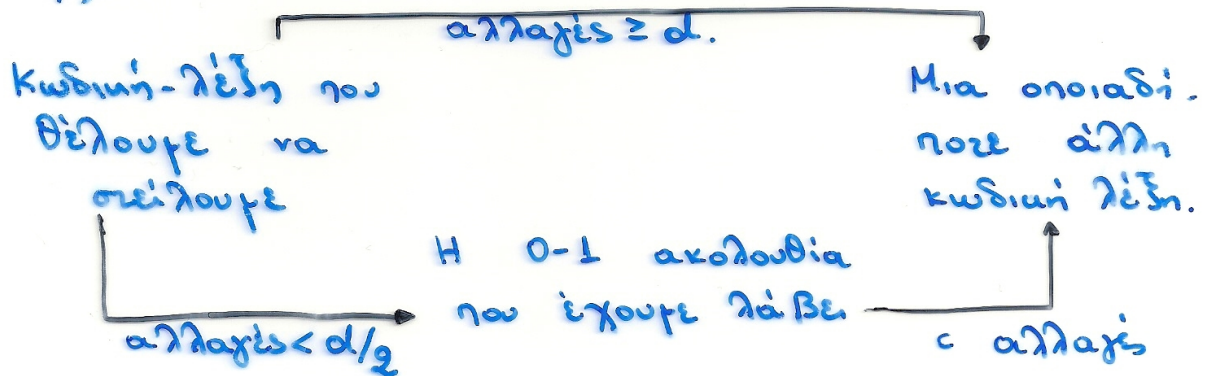 αλλαγές ≥ d.
Κωδική-λέξη που
θέλουμε να
στείλουμε
Μια οποιαδή-
ποτε άλλη
κωδική λέξη.
Η 0-1 ακολουθία
που έχουμε λάβει
αλλαγές < d/2
c αλλαγές